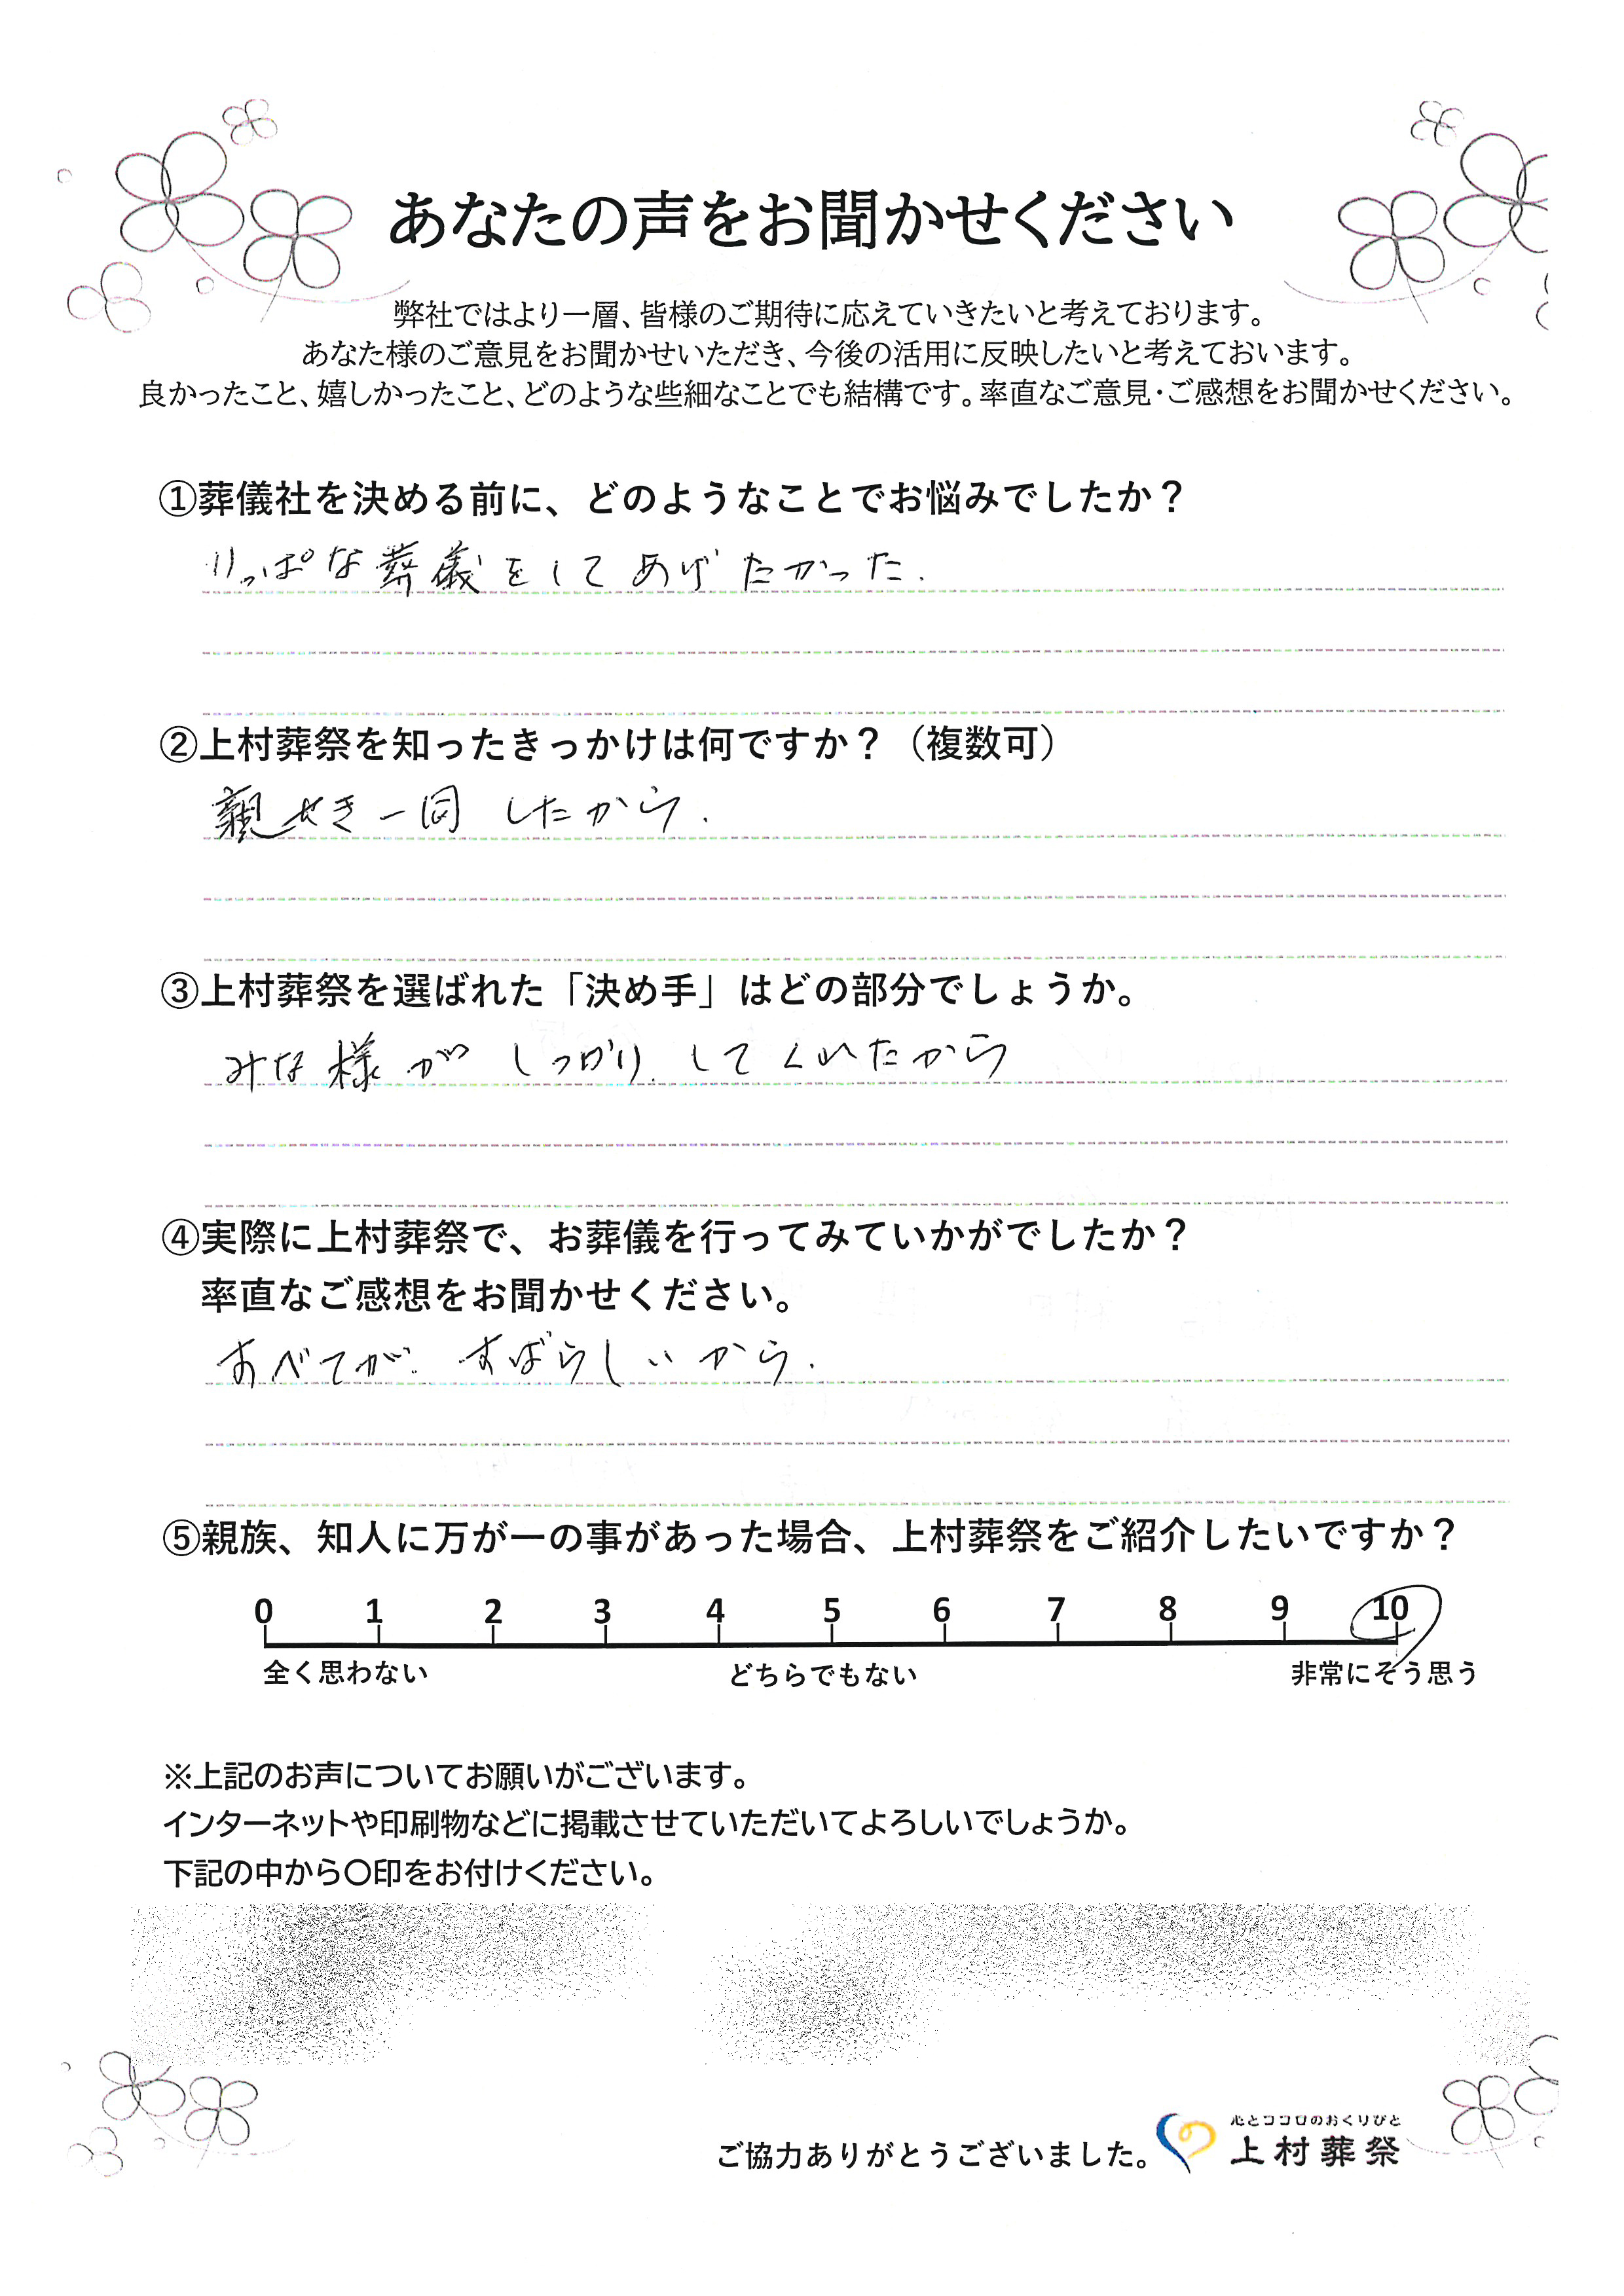 あなたの声をお聞かせください
弊社ではより一層、皆様のご期待に応えていきたいと考えております。
あなた様のご意見をお聞かせいただき、今後の活用に反映したいと考えておいます。
良かったこと、嬉しかったこと、どのような些細なことでも結構です。率直なご意見・ご感想をお聞かせください。
①葬儀社を決める前に、どのようなことでお悩みでしたか？
りっぱな葬儀をしてあげたかった.
②上村葬祭を知ったきっかけは何ですか？（複数可）
親せき一同 したから.
③上村葬祭を選ばれた「決め手」はどの部分でしょうか。
みな様が しっかり してくれたから
④実際に上村葬祭で、お葬儀を行ってみていかがでしたか？
率直なご感想をお聞かせください。
すべてが すばらしいから.
⑤親族、知人に万が一の事があった場合、上村葬祭をご紹介したいですか？
0 1 2 3 4 5 6 7 8 9 10
全く思わない どちらでもない 非常にそう思う
※上記のお声についてお願いがございます。
インターネットや印刷物などに掲載させていただいてよろしいでしょうか。
下記の中から〇印をお付けください。
心とココロのおくりびと
ご協力ありがとうございました。 上村葬祭